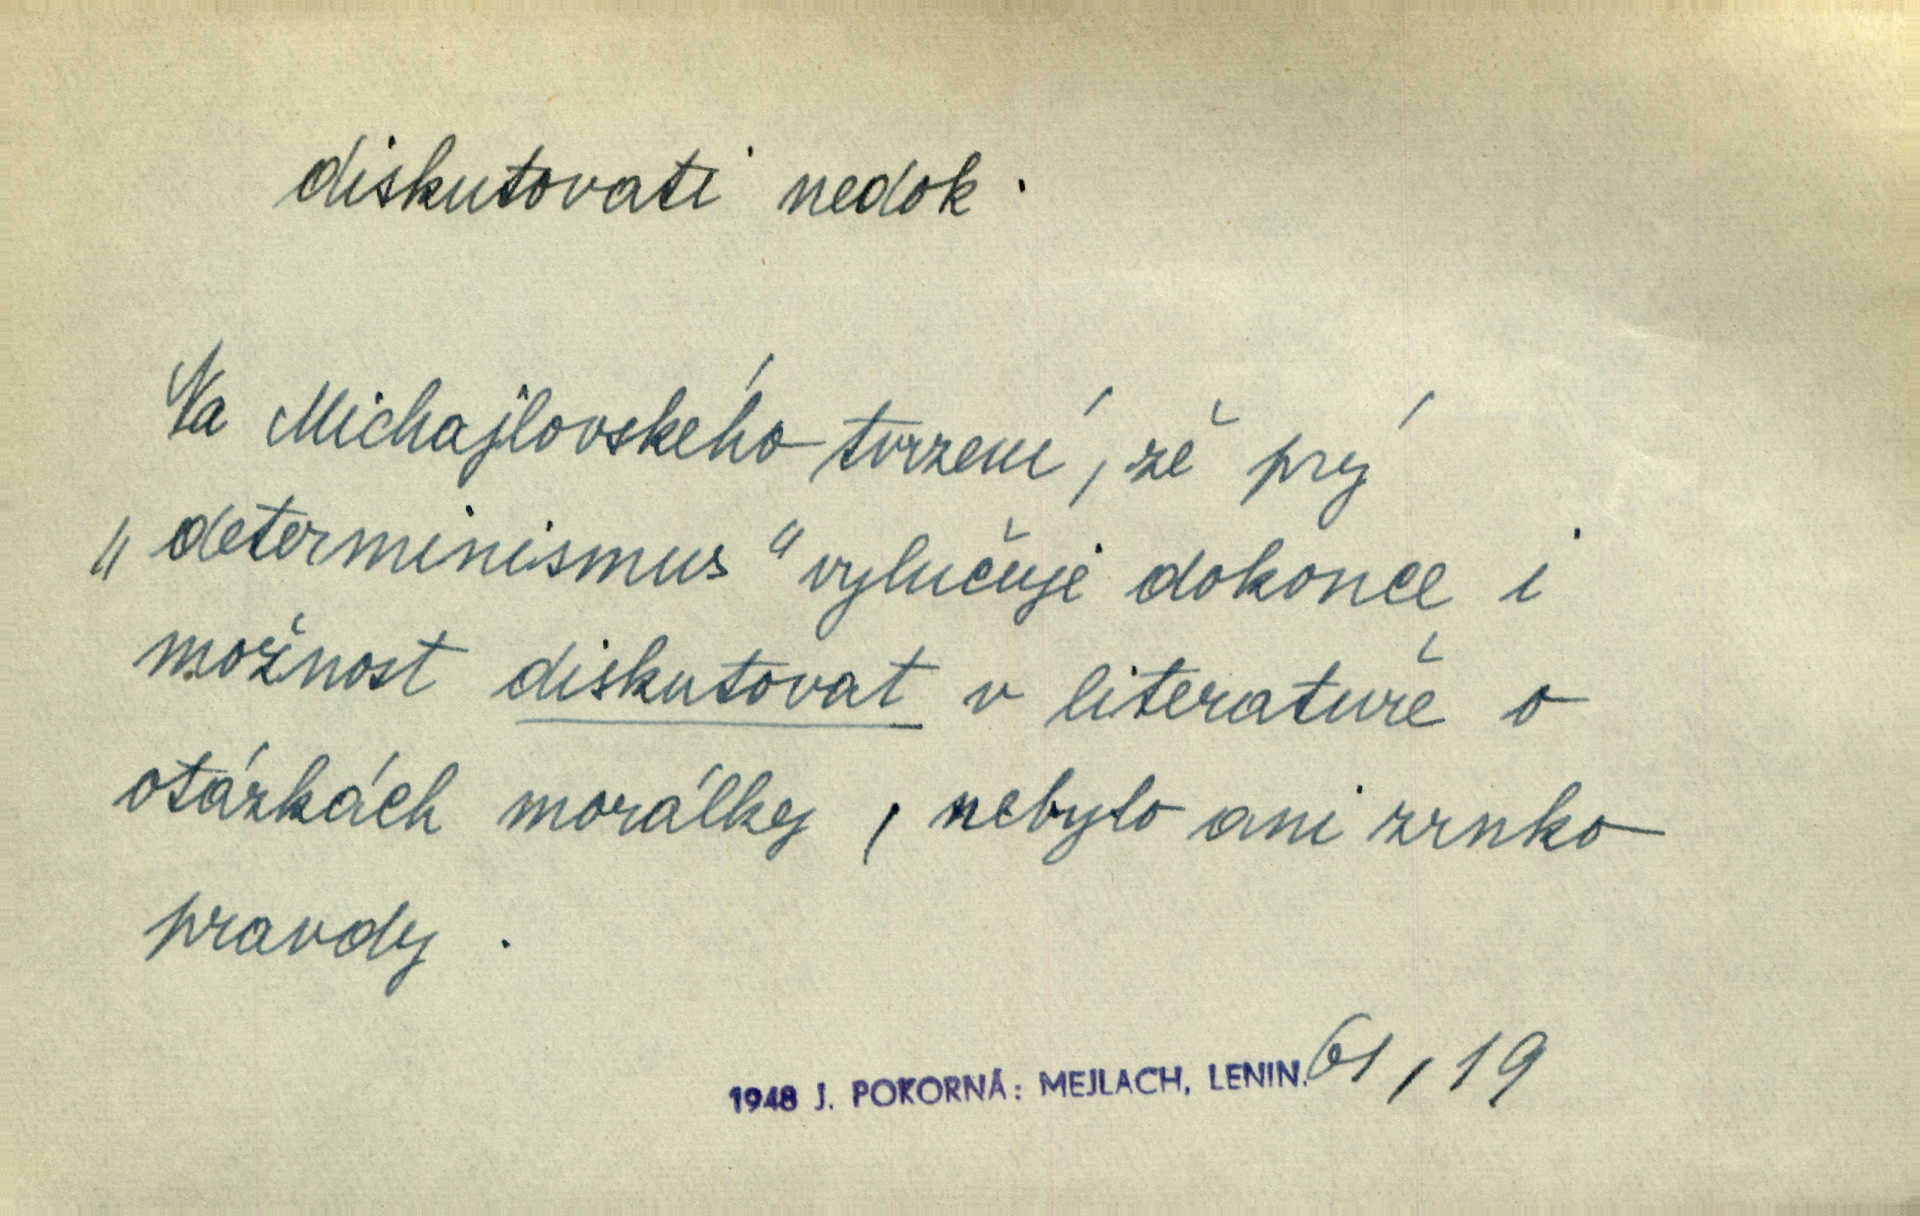 diskutovati nedok.
Na Michajlovského tvrzení, že prý
„determinismus“ vylučuje dokonce i
možnost diskutovat v literatuře o
otázkách morálky, nebylo ani zrnko
pravdy.
1948 J. POKORNÁ: MEJLACH, LENIN. 61, 19